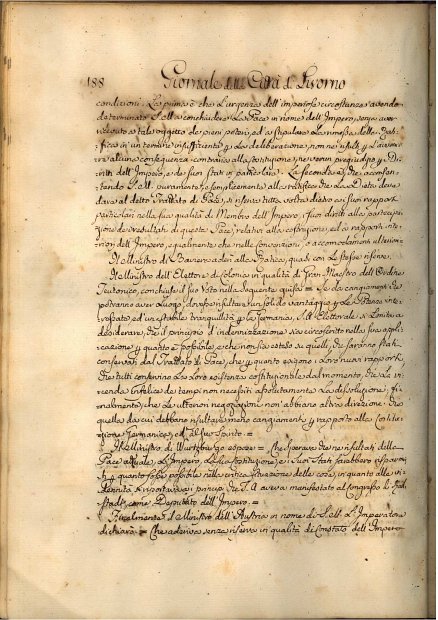 188 Giornale della Città di Livorno
condizioni. La prima è che l'urgenza dell'imperiose circostanze avendo
determinato S. M. a conchiudere la Pace in nome dell'Impero, senza aver
veduto a tale oggetto de pieni poteri, ed a stipulare la rimessa delle Rati-
fica in un termine insufficiente p. la deliberazione, non ne risulti p. l'avveni-
re alcuna conseguenza contraria alla Costituzione, ne verun pregiudizio p. i Di-
ritti dell'Impero, e de suoi stati in particolare. La seconda è, che accosen-
tendo S. M. puramente, e semplicemente alla ratifica che la Dieta deve
dare al detto Trattato di Pace, si riserva tutta volta dietro a i suoi rapporti
particolari nella sua qualità di Membro dell'Impero, i suoi diritti alla partecipa-
zione de resultati di questa Pace, relativi alla costituzione, ed a rapporti inte-
riori dell'Impero, egualmente che nelle convenzioni, e accomodamenti ulteriori.
Il Ministro di Baviera aderì alla Ratifica, quasi con le stesse riserve.
Il Ministro dell'Elettore di Colonia in qualità di Gran Maestro dell'Ordine
Teutonico, conchiuse il suo Voto nella seguente guisa = Se da cangiamenti che
potranno aver Luogo, dovesse risultare un solido vantaggio p. le Potenze inte-
ressate, ed un'estabile tranquillità p. la Germania, S. A. Elettorale si limita a
desiderare, che il principio d'indennizzazione sia circoscritto nella sua appli-
cazione p. quanto è possibile, e che non sia esteso su quelli, che saranno stati
conservati dal Trattato di Pace; che p. quanto esigono i loro nuovi rapporti,
che tutti conservino la loro esistenza costituzionale dal momento, che la vi-
cenda infelice de tempi non necessiti assolutamente la dissoluzione; fi-
nalmente, che le ulteriori negoziazioni non abbiano altra direzione che
quella da cui debbano risultare meno cangiamenti p. rapporto alla Costitu-
zione Germanica, ed al suo spirito =
Il Ministro di Wurtzburgo espose = Che sperava che ne risultati della
Pace attuale, l'Impero, la sua Costituzione, e i suoi Stati sarebbero conserva-
ti p. quanto fosse possibile nella vera situazione delle cose, in quanto alle in-
dennità si riportava ai principj che S. A. aveva manifestato al Congresso di Rad-
stadt, come Deputato dell'Impero. =
Finalmente il Ministro dell'Austria in nome di S. M. L'Imperatore
dichiarò = Che aderiva senza riserva in qualità di Costato dell'Impero